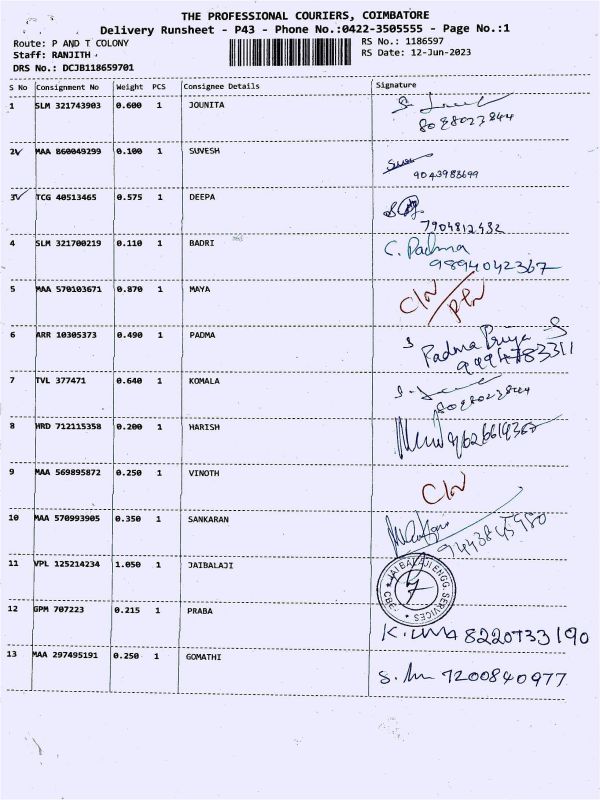 THE PROFESSIONAL COURIERS, COIMBATORE
Delivery Runsheet - P43 - Phone No.:0422-3505555 - Page No.:1
Route: P AND T COLONY RS No.: 1186597
Staff: RANJITH RS Date: 12-Jun-2023
DRS No.: DCJB118659701
S No Consignment No Weight PCS Consignee Details Signature
1 SLM 321743903 0.600 1 JOUNITA
2 MAA 860049299 0.100 1 SUVESH
9043983699
3 TCG 40513465 0.575 1 DEEPA
7904812432
4 SLM 321700219 0.110 1 BADRI C. Padma
9894042367
5 MAA 570103671 0.870 1 MAYA
6 ARR 10305373 0.490 1 PADMA Padma Priya S
9994783311
7 TVL 377471 0.640 1 KOMALA
8 HRD 712115358 0.200 1 HARISH
9 MAA 569895872 0.250 1 VINOTH
10 MAA 570993905 0.350 1 SANKARAN
11 VPL 125214234 1.050 1 JAIBALAJI JAI BALAJI ENGG. SERVICES CBE
12 GPM 707223 0.215 1 PRABA K. UMA 8220733190
13 MAA 297495191 0.250 1 GOMATHI 7200840977